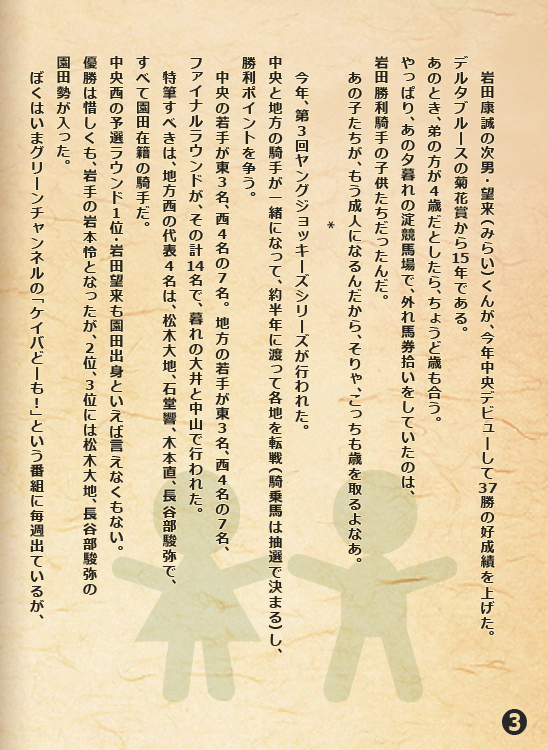 岩田康誠の次男・望来（みらい）くんが、今年中央デビューして37勝の好成績を上げた。
デルタブルースの菊花賞から15年である。
あのとき、弟の方が４歳だとしたら、ちょうど歳も合う。
やっぱり、あの夕暮れの淀競馬場で、外れ馬券拾いをしていたのは、
岩田勝利騎手の子供たちだったんだ。
あの子たちが、もう成人になるんだから、そりゃ、こっちも歳を取るよなあ。
＊
今年、第３回ヤングジョッキーズシリーズが行われた。
中央と地方の騎手が一緒になって、約半年に渡って各地を転戦（騎乗馬は抽選で決まる）し、
勝利ポイントを争う。
中央の若手が東３名、西４名の７名。地方の若手が東３名、西４名の７名、
ファイナルラウンドが、その計14名で、暮れの大井と中山で行われた。
特筆すべきは、地方西の代表４名は、松木大地、石堂響、木本直、長谷部駿弥で、
すべて園田在籍の騎手だ。
中央西の予選ラウンド１位・岩田望来も園田出身といえば言えなくもない。
優勝は惜しくも、岩手の岩本怜となったが、２位、３位には松木大地、長谷部駿弥の
園田勢が入った。
ぼくはいまグリーンチャンネルの「ケイバどーも！」という番組に毎週出ているが、
3